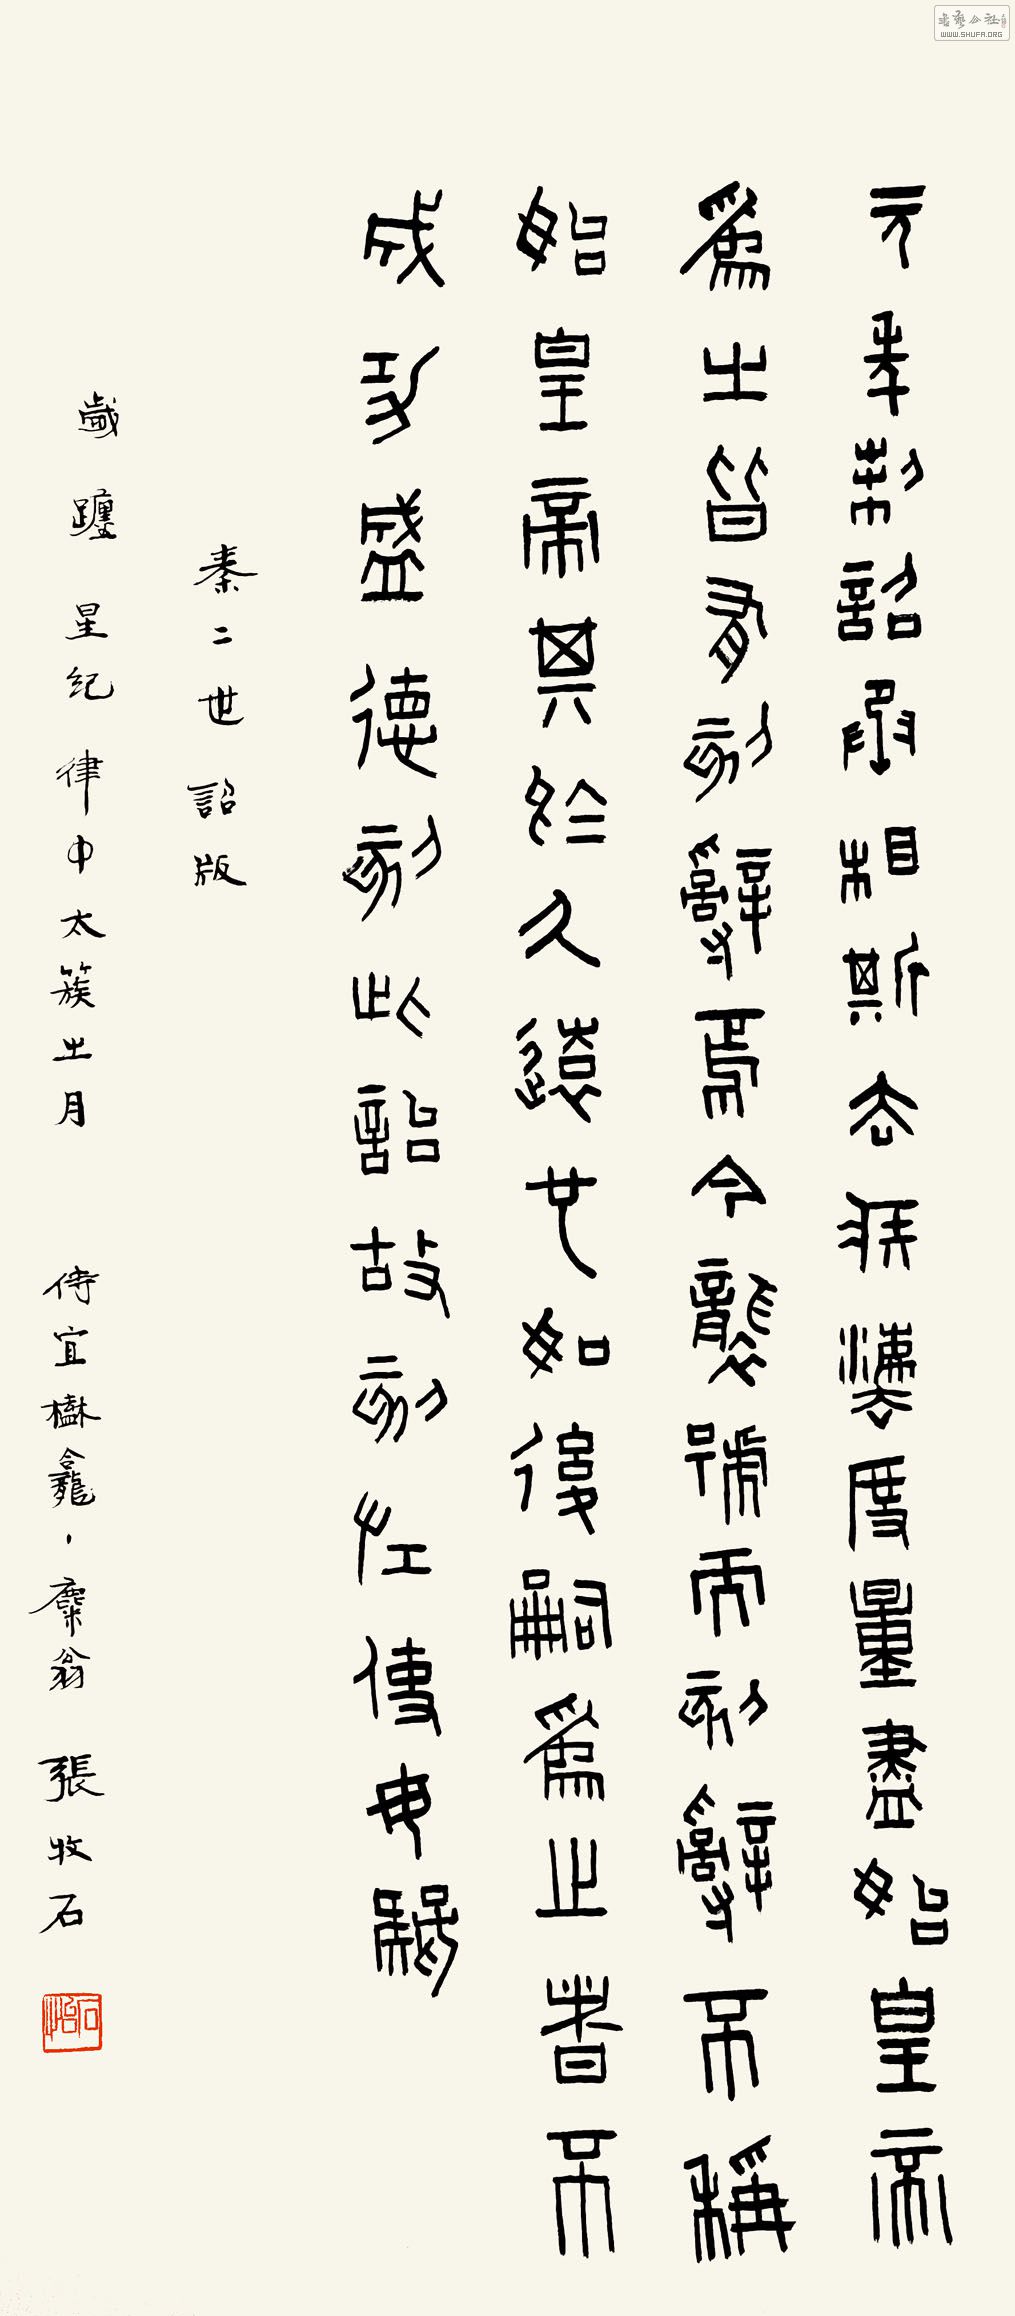 元年制詔丞相斯去疾灋度量盡始皇帝
爲之皆有刻辭焉今襲號而刻辭不稱
始皇帝其於久遠也如後嗣爲之者不
稱成功盛德刻此詔故刻左使毋疑
秦二世詔版
歲躔星紀律中太蔟之月
侍宜樹龕丶麋翁張牧石
书艺公社
WWW.SHUFA.ORG